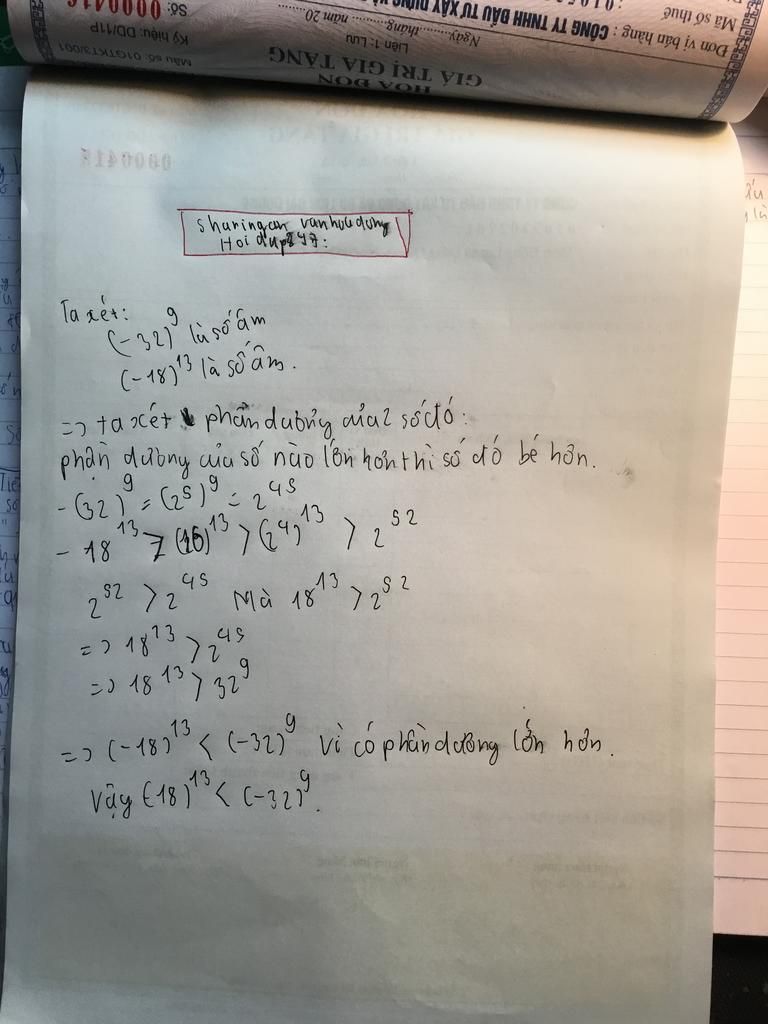 Mẫu số: 01GTKT3/001
Ký hiệu: DD/11P
Số: 0000416
HÓA ĐƠN
GIÁ TRỊ GIA TĂNG
Liên 1: Lưu
Ngày..........tháng..........năm 20
Đơn vị bán hàng : CÔNG TY TNHH ĐẦU TƯ XÂY DỰNG
Mã số thuế
0000417
sharingan
Hoidap247:
Ta xét:
(-32)^9 là số âm
(-18)^13 là số âm.
=> ta xét phần dương của 2 số đó:
phần dương của số nào lớn hơn thì số đó bé hơn.
- (32)^9 = (2^5)^9 = 2^45
- 18^13 > (16)^13 > (2^4)^13 > 2^52
2^52 > 2^45 Mà 18^13 > 2^52
=> 18^13 > 2^45
=> 18^13 > 32^9
=> (-18)^13 < (-32)^9 vì có phần dương lớn hơn.
Vậy (-18)^13 < (-32)^9.